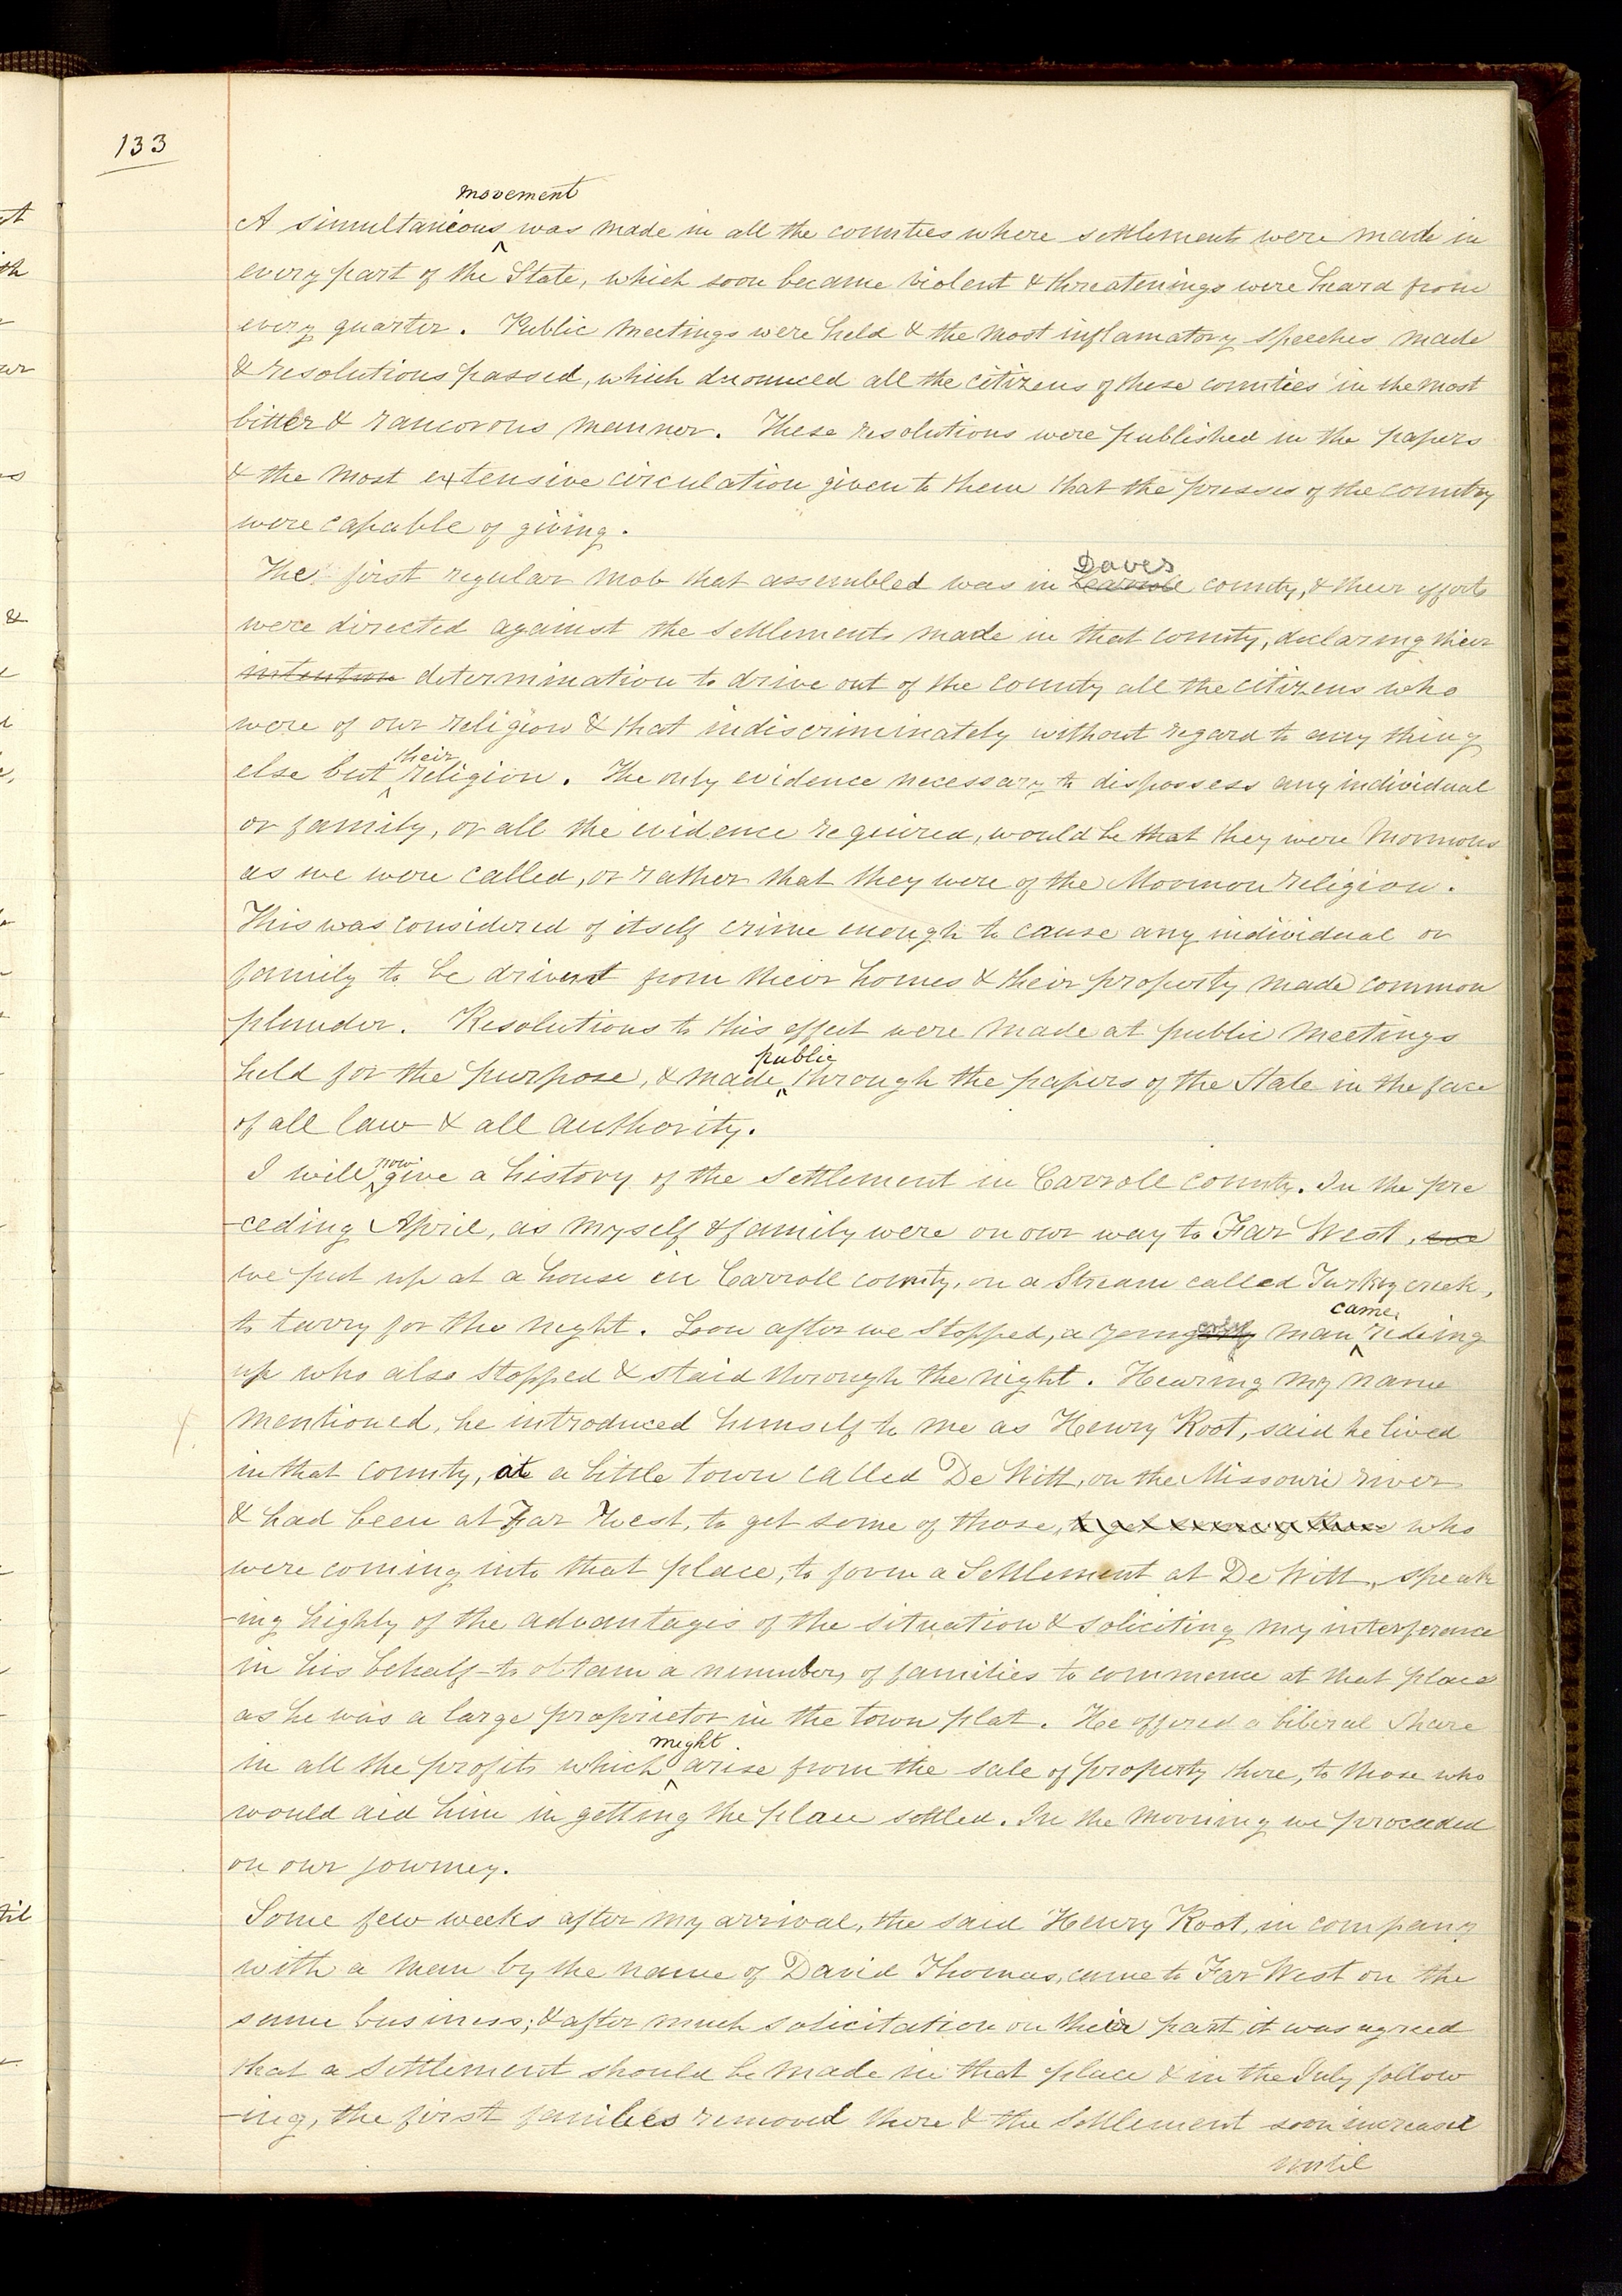 133
movement
A simultanious ‸ was made in all the counties where settlements were made in
every part of the State, which soon became violent & threatenings were heard from
every quarter. Public meetings were held & the most inflamatory speeches made
& resolutions passed, which denounced all the citizens of these counties in the most
bitter & rancorous manner. These resolutions were published in the papers
& the most extensive circulation given to them that the presses of the country
were capable of giving.
Daves
The first regular mob that assembled was in Carroll county, & their efforts
were directed against the settlements made in that county, declaring their
intention determination to drive out of the county all the citizens who
were of our religion & that indiscriminately without regard to any thing
their
else but ‸ religion. The only evidence necessary to dispossess any individual
or family, or all the evidence required, would be that they were Mormons
as we were called, or rather that they were of the Mormon religion.
This was considered of itself crime enough to cause any individual or
family to be driven from their homes & their property made common
plunder. Resolutions to this effect were made at public meetings
public
held for the purpose, & made ‸ through the papers of the State in the face
of all law & all authority.
now
I will ‸ give a history of the settlement in Carroll county. In the pre
-ceding April, as myself & family were on our way to Far West,
we put up at a house in Carroll county, on a stream called Turkey creek,
came
to tarry for the night. Soon after we stopped, a young man ‸ rideing
up who also stopped & staid through the night. Hearing my name
mentioned, he introduced himself to me as Henry Root, said he lived
in that county, at a little town called De Witt, on the Missouri river
& had been at Far West, to get some of those, to get some of those who
were coming into that place, to form a Settlement at De Witt, speak
-ing highly of the advantages of the situation & soliciting my interference
in his behalf to obtain a number of families to commence at that place
as he was a large proprietor in the town plat. He offered a liberal share
might
in all the profits which ‸ arise from the sale of property there, to those who
would aid him in getting the place settled. In the morning we proceeded
on our journey.
Some few weeks after my arrival, the said Henry Root, in company
with a man by the name of David Thomas, came to Far West on the
same business; & after much solicitation on their part it was agreed
that a settlement should be made in that place & in the July follow
-ing, the first families removed there & the settlement soon increased
until